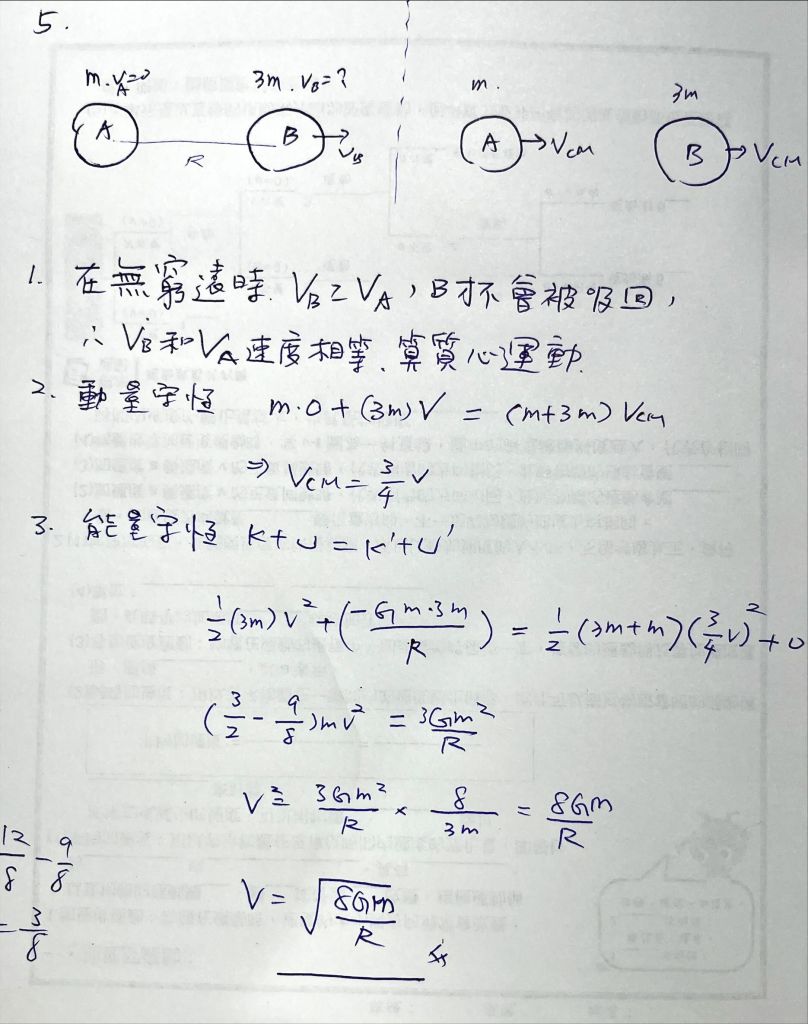 5.
m. V_A=0
3m. V_B=?
m.
3m
A
R
B
V_B
A
V_CM
B
V_CM
1. 在無窮遠時. V_B≥V_A, B才不會被吸回,
∴ V_B和V_A速度相等、算質心運動.
2. 動量守恆 m·0+(3m)V = (m+3m) V_CM
⇒ V_CM = 3/4 V
3. 能量守恆 K+U = K'+U'
1/2 (3m) V² + (-Gm·3m/R) = 1/2 (3m+m)(3/4 V)² + 0
(3/2 - 9/8) mV² = 3Gm²/R
V² = 3Gm²/R × 8/3m = 8Gm/R
12/8 - 9/8
= 3/8
V = √(8Gm/R)